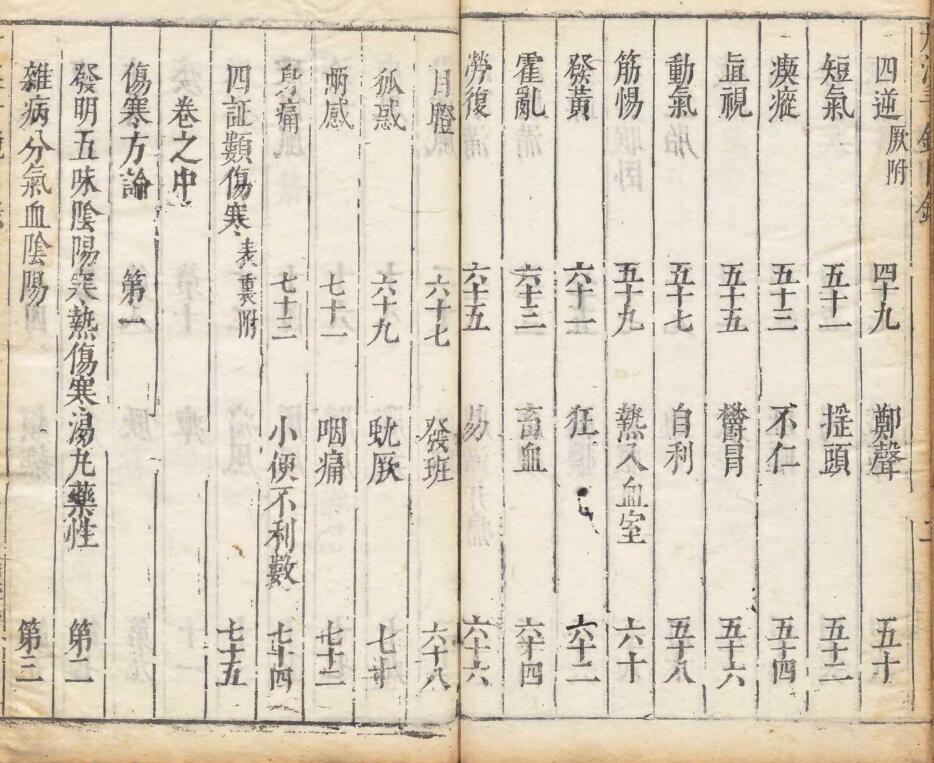 四逆 厥附 四十九 鄭聲 五十
短氣 五十一 揺頭 五十二
瘈瘲 五十三 不仁 五十四
直視 五十五 鬱冒 五十六
動氣 五十七 自利 五十八
筋惕 五十九 熱入血室 六十
發黃 六十一 狂 六十二
霍亂 六十三 畜血 六十四
勞復 六十五 易 六十六
目瞪 六十七 發班 六十八
狐惑 六十九 蚘厥 七十
兩感 七十一 咽痛 七十二
身痛 七十三 小便不利數 七十四
四証類傷寒 表裏附 七十五
卷之中
傷寒方論 第一
發明五味陰陽寒熱傷寒湯丸藥性 第二
雜病分氣血陰陽 第三